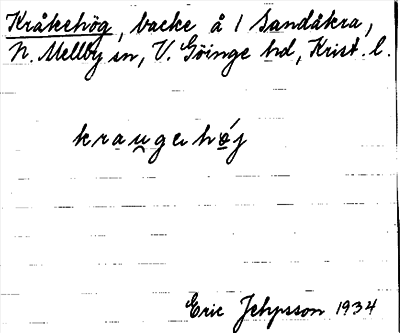 Kråkehög, backe å 1 Sandåkra,
N. Mellby sn, V. Göinge hd, Krist. l.
krau̯gehǿ̱j
Eric Jepsson 1934